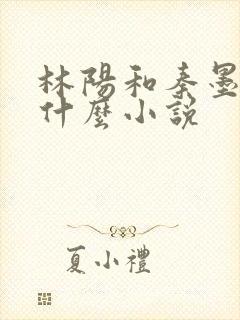 林陽和秦墨
什麼小說
夏小禮